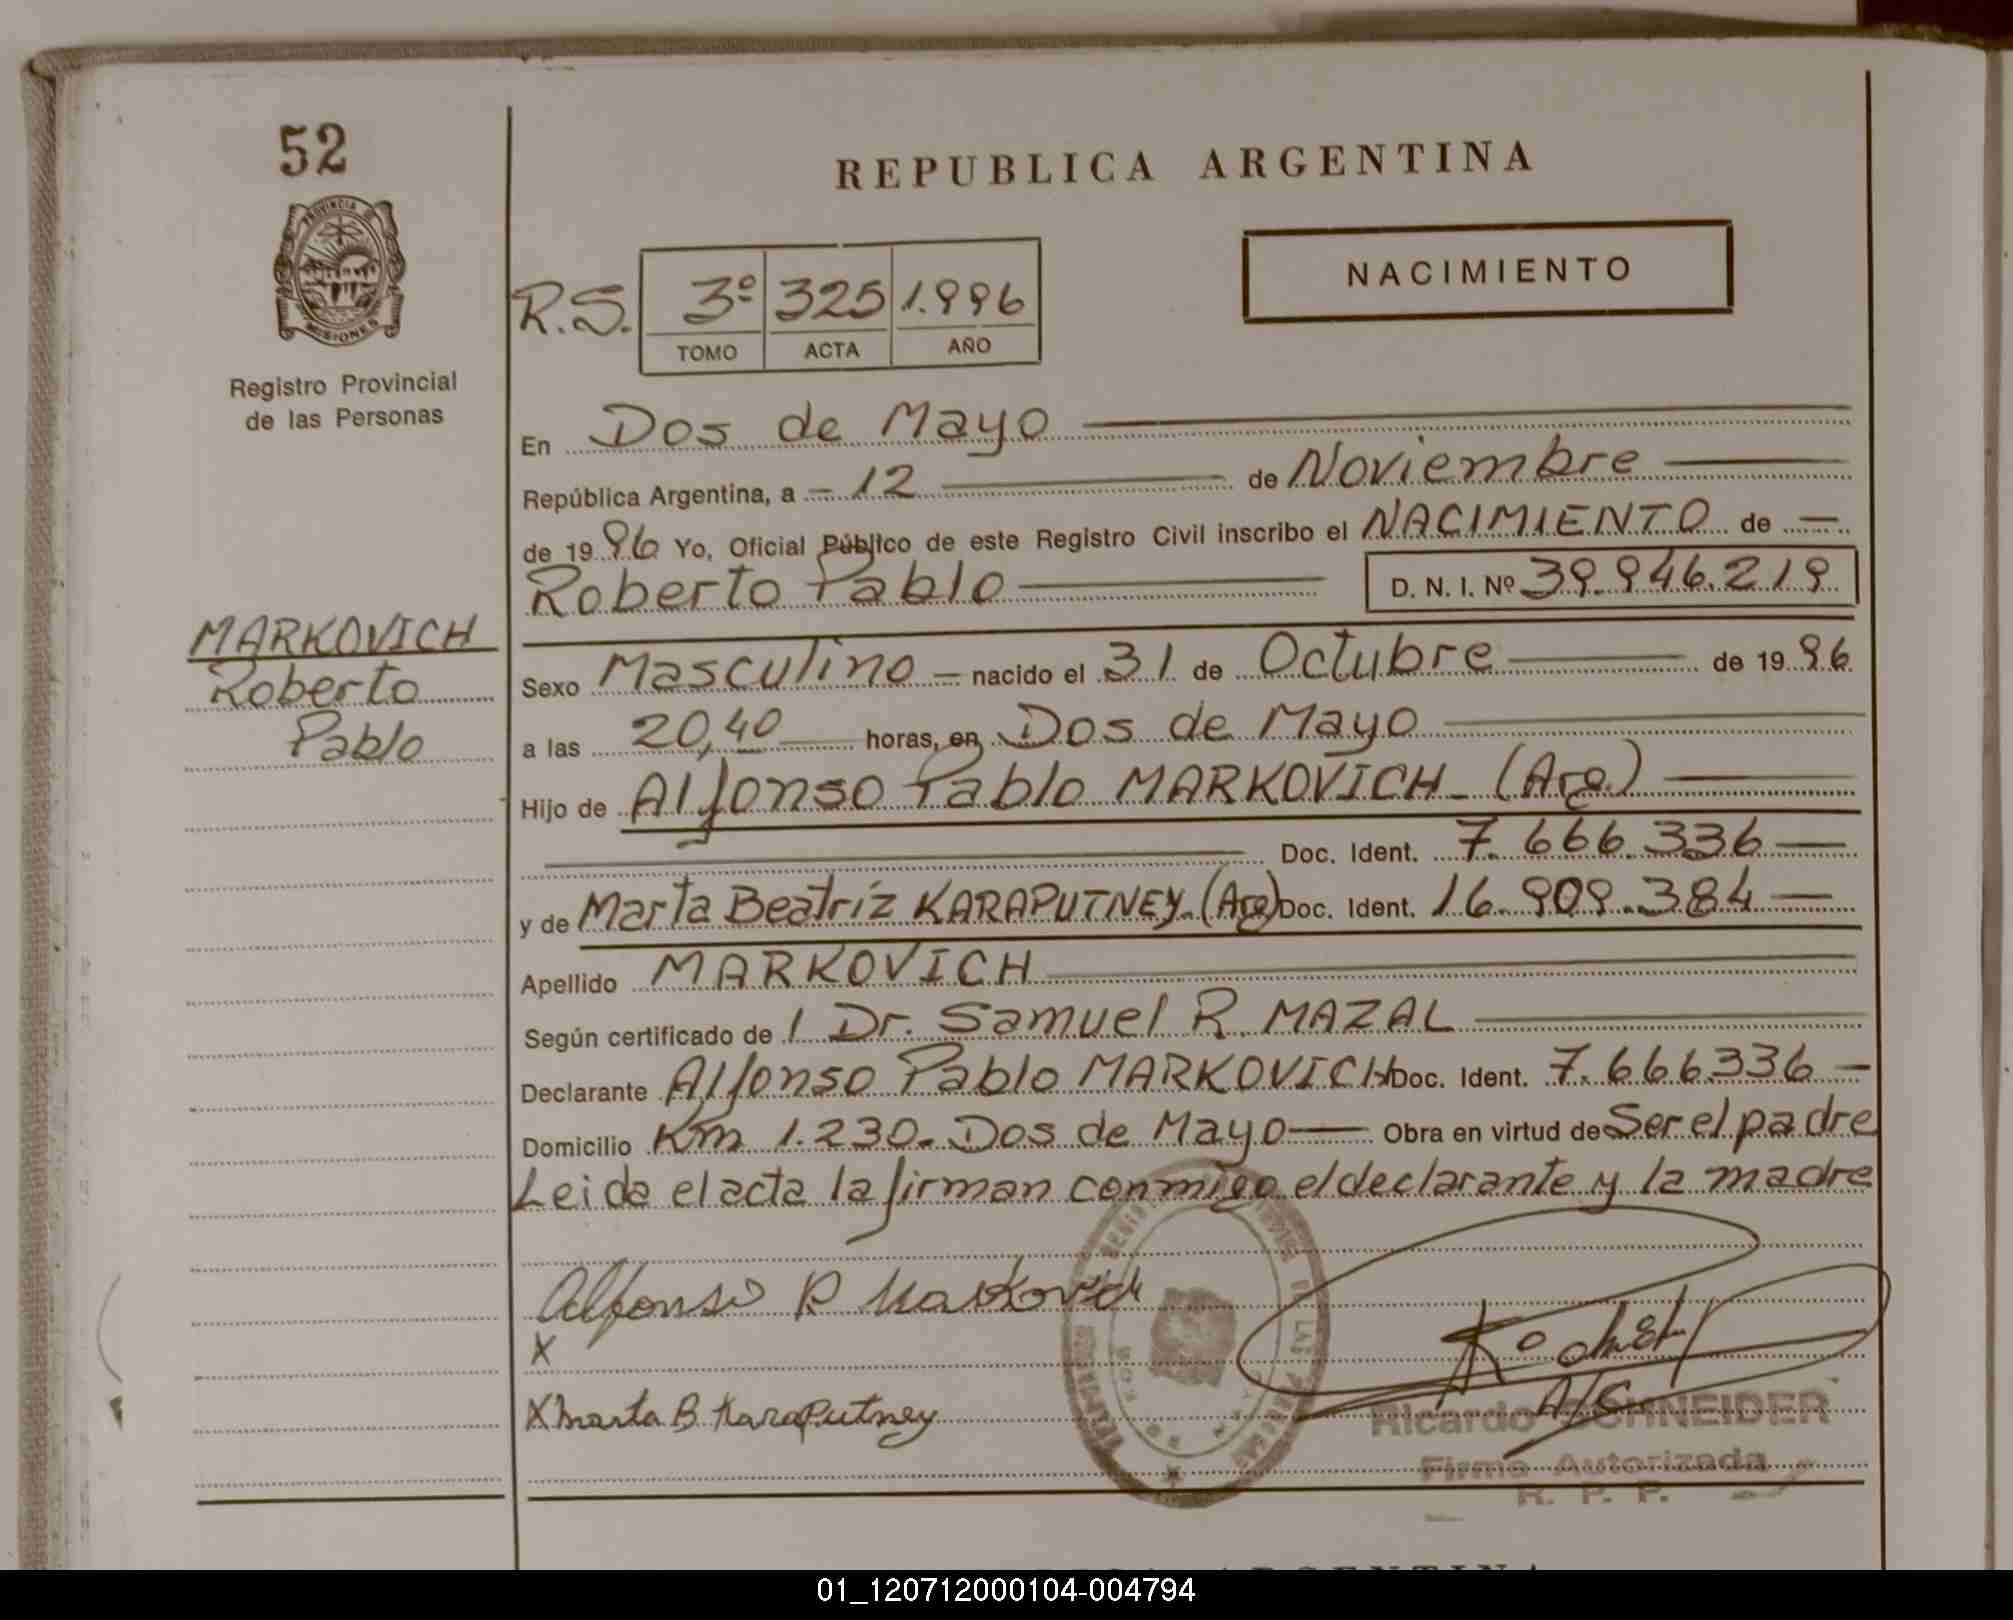 52
PROVINCIA DE
MISIONES
Registro Provincial
de las Personas
MARKOVICH
Roberto
Pablo
REPUBLICA ARGENTINA
NACIMIENTO
R.S. 3º 325 1.996
TOMO ACTA AÑO
En Dos de Mayo
República Argentina, a - 12 de Noviembre
de 1996 Yo, Oficial Público de este Registro Civil inscribo el NACIMIENTO de —
Roberto Pablo D. N. I. Nº 39.946.219
Sexo Masculino — nacido el 31 de Octubre de 1996
a las 20,40 horas, en Dos de Mayo
Hijo de Alfonso Pablo MARKOVICH - (Arg.)
Doc. Ident. 7.666.336 —
y de Marta Beatríz KARAPUTNEY. (Arg) Doc. Ident. 16.909.384 —
Apellido MARKOVICH
Según certificado de 1 Dr. Samuel R. MAZAL
Declarante Alfonso Pablo MARKOVICH Doc. Ident. 7.666336 —
Domicilio Km 1.230. Dos de Mayo — Obra en virtud de Ser el padre
Leida el acta la firman conmigo el declarante y la madre
Alfonso P Markovich
X
X Marta B. Karaputney
A/C
Ricardo SCHNEIDER
Firma Autorizada
R. P. P.
01_120712000104-004794